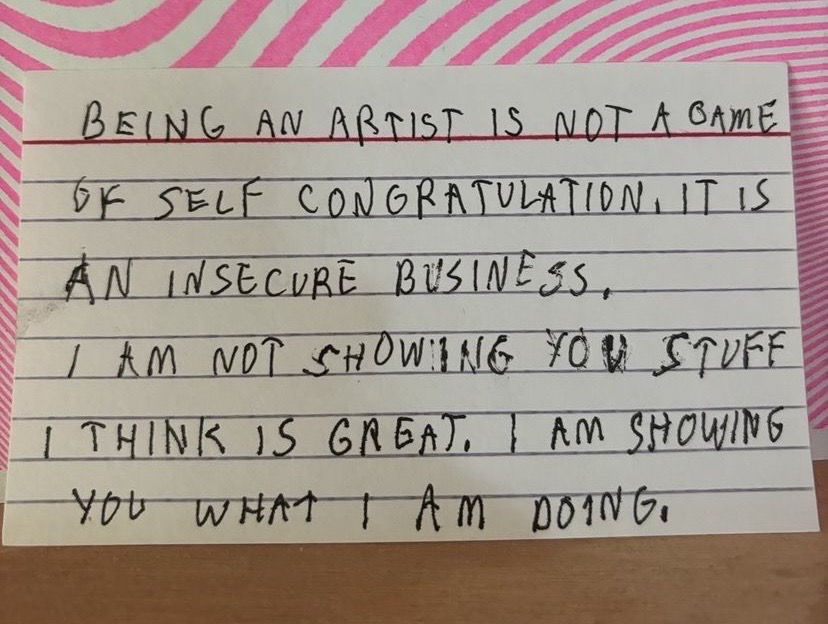 BEING AN ARTIST IS NOT A GAME
OF SELF CONGRATULATION. IT IS
AN INSECURE BUSINESS.
I AM NOT SHOWING YOU STUFF
I THINK IS GREAT. I AM SHOWING
YOU WHAT I AM DOING.